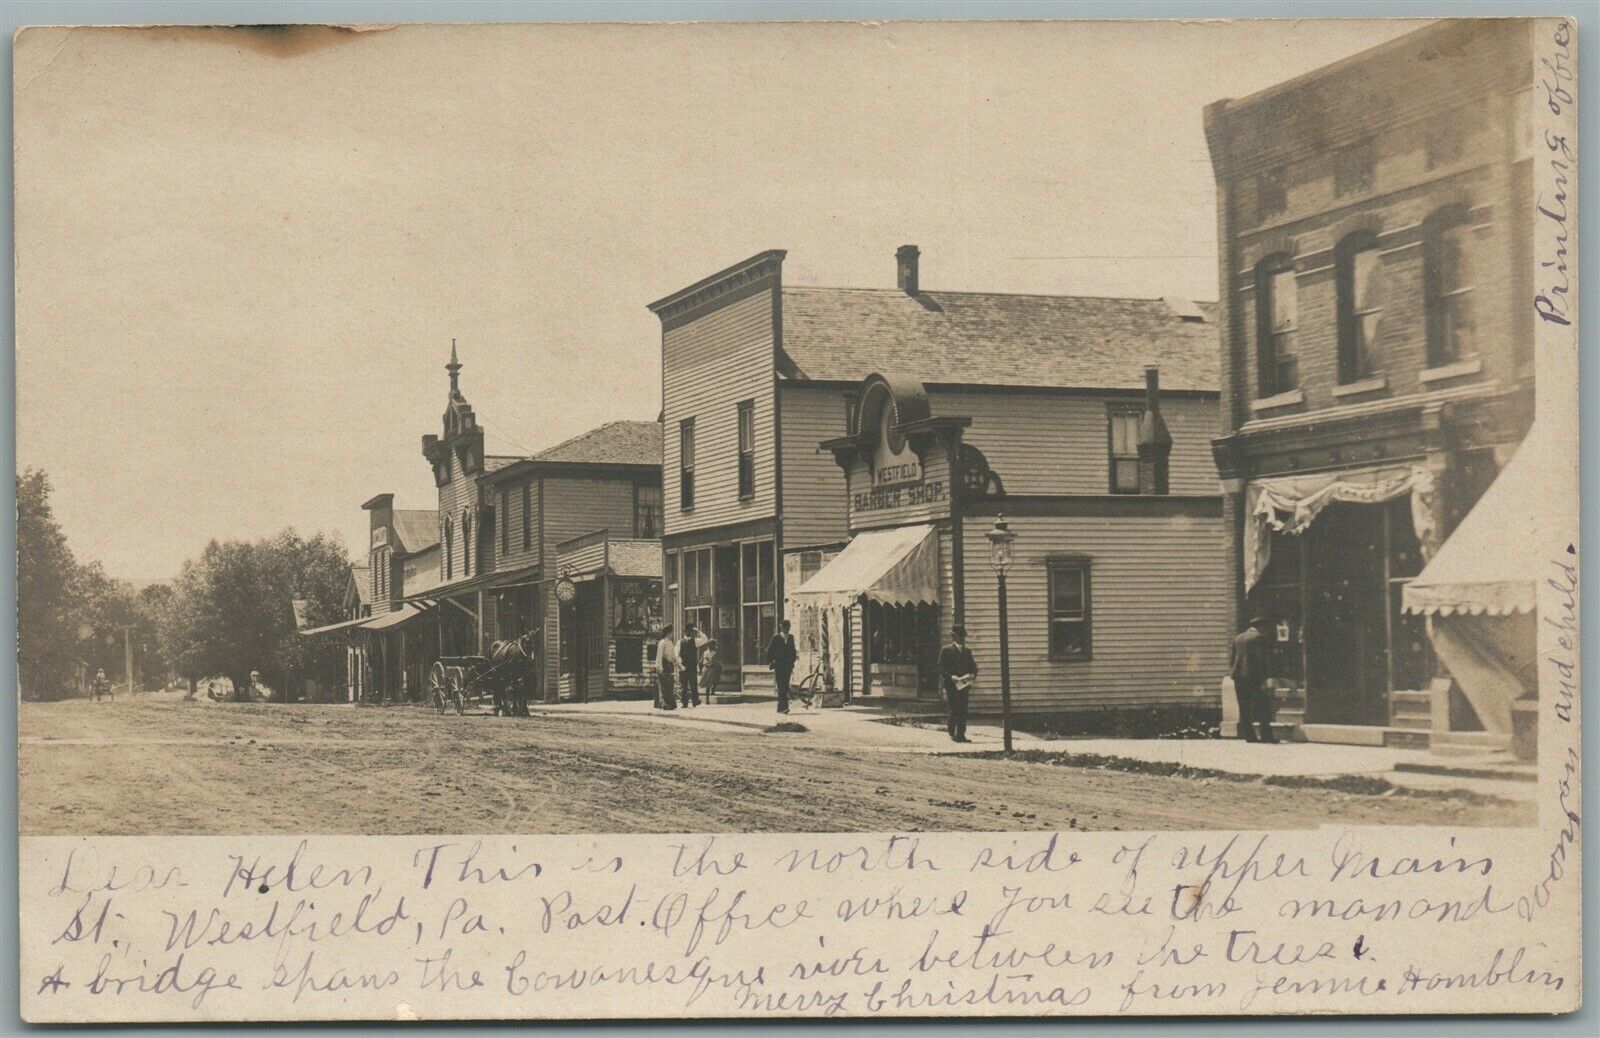 WESTFIELD
BARBER SHOP.
Dear Helen, This is the north side of upper Main
St., Westfield, Pa. Post. Office where you see the man and
woman and child.
A bridge spans the Cowanesque river between the trees.
Merry Christmas from Jennie Hamblin
Printing office